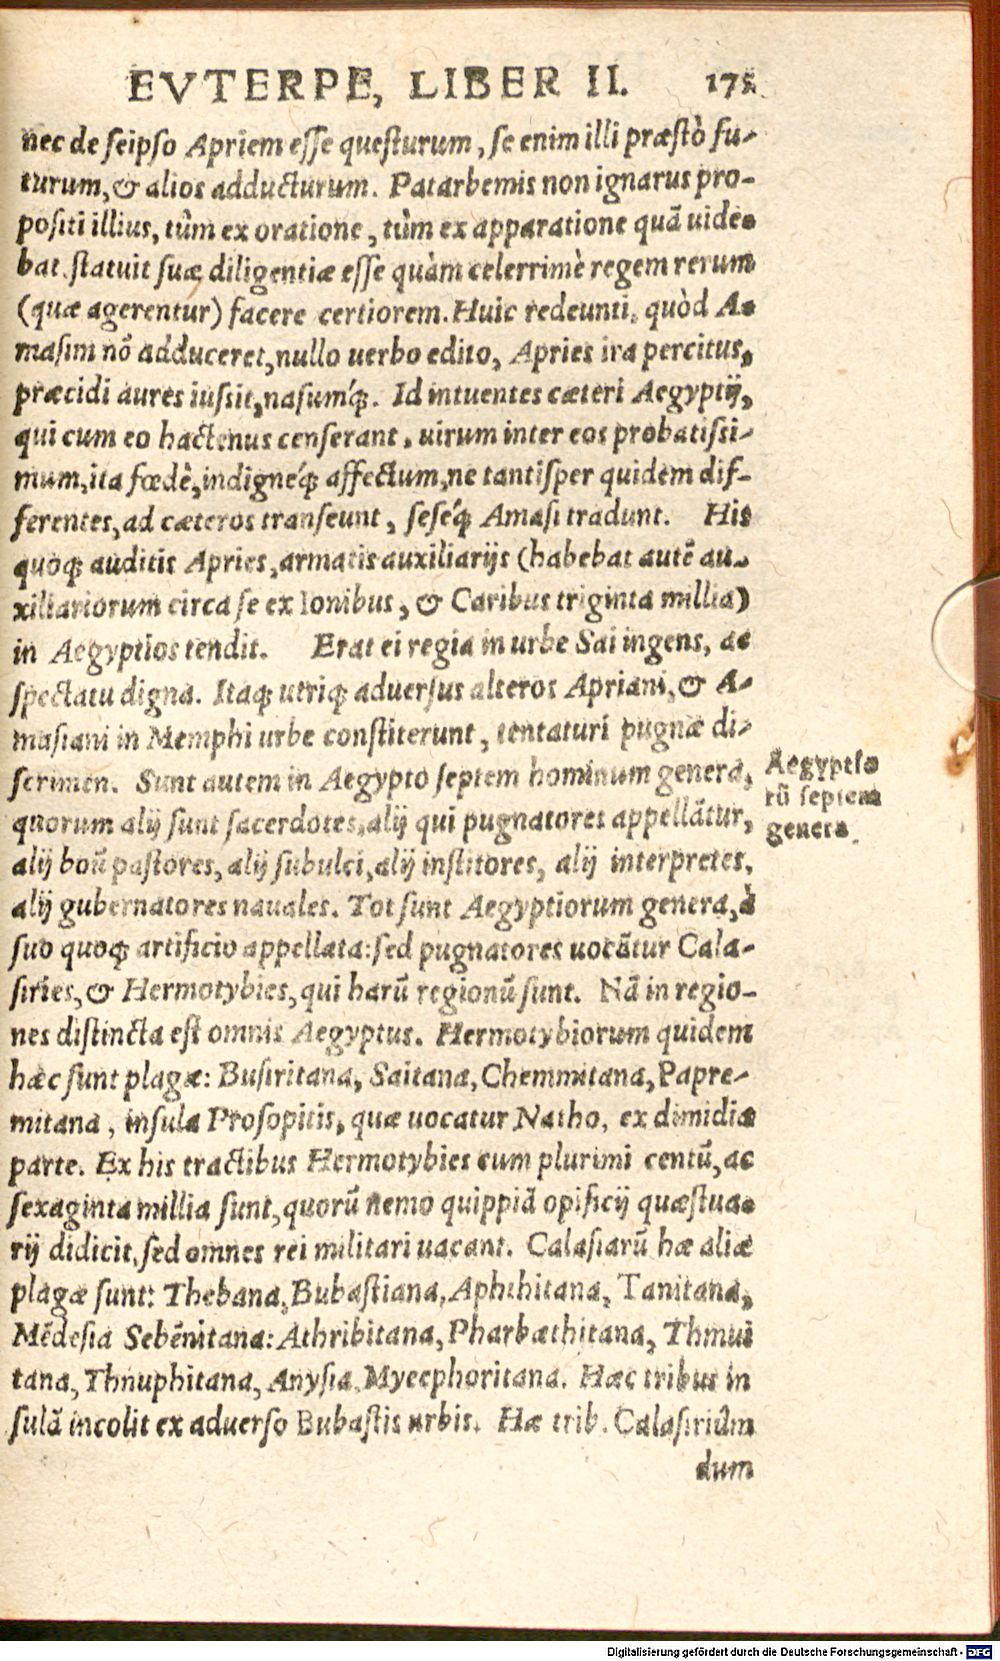 EVTERPE, LIBER II. 175
nec de seipso Apriem esse questurum, se enim illi præstò fu-
turum, & alios adducturum. Patarbemis non ignarus pro-
positi illius, tùm ex oratione, tùm ex apparatione quã uide-
bat. statuit suæ diligentiæ esse quàm celerrimè regem rerum
(quæ agerentur) facere certiorem. Huic redeunti, quòd A-
masim nõ adduceret, nullo uerbo edito, Apries ira percitus,
præcidi aures iussit, nasumq́;. Id intuentes cæteri Aegyptij,
qui cum eo hactenus censerant, uirum inter eos probatissi-
mum, ita fœdè, indigneq́; affectum, ne tantisper quidem dif-
ferentes, ad cæteros transeunt, seseq́; Amasi tradunt. His
quoq; auditis Apries, armatis auxiliarijs (habebat autẽ au-
xiliariorum circa se ex Ionibus, & Caribus triginta millia)
in Aegyptios tendit. Erat ei regia in urbe Sai ingens, ac
spectatu digna. Itaq; utriq; aduersus alteros Apriani, & A-
masiani in Memphi urbe constiterunt, tentaturi pugnæ di-
scrimen. Sunt autem in Aegypto septem hominum genera,
quorum alij sunt sacerdotes, alij qui pugnatores appellãtur,
alij boũ pastores, alij subulci, alij institores, alij interpretes,
alij gubernatores nauales. Tot sunt Aegyptiorum genera, à
suo quoq; artificio appellata: sed pugnatores uocãtur Cala-
siries, & Hermotybies, qui harũ regionũ sunt. Nã in regio-
nes distincta est omnis Aegyptus. Hermotybiorum quidem
hæc sunt plagæ: Busiritana, Saitana, Chemmitana, Papre-
mitana, insula Prosopitis, quæ uocatur Natho, ex dimidia
parte. Ex his tractibus Hermotybies cum plurimi centũ, ac
sexaginta millia sunt, quorũ nemo quippiã opificij quæstua-
rij didicit, sed omnes rei militari uacant. Calasiarũ hæ aliæ
plagæ sunt: Thebana, Bubastiana, Aphthitana, Tanitana,
Mẽdesia Sebẽnitana: Athribitana, Pharbæthitana, Thmui
tana, Thnuphitana, Anysia, Myecphoritana. Hæc tribus in
sulã incolit ex aduerso Bubastis urbis. Hæ trib. Calasiriûm
dum
Aegyptio
rũ septem
genera.
Digitalisierung gefördert durch die Deutsche Forschungsgemeinschaft - DFG